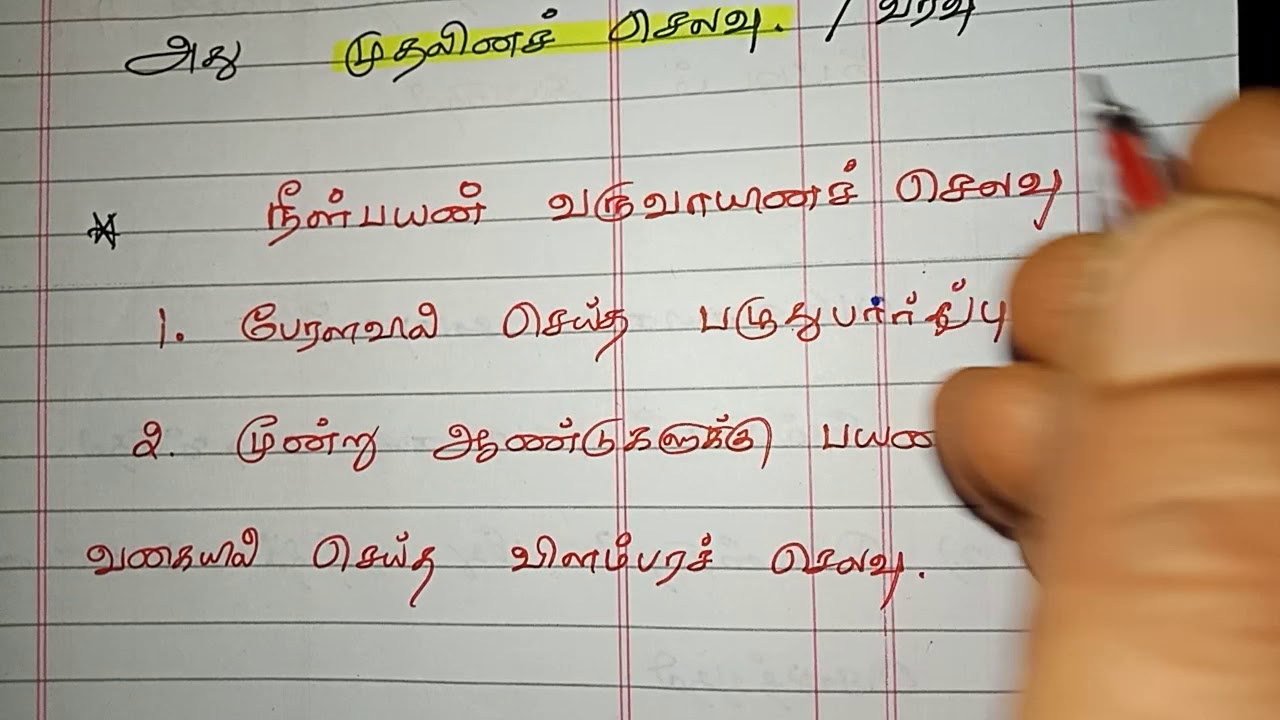 அது முதலினச் செலவு. / வரவு
* நீள்பயன் வருவாயினச் செலவு
1. பேரளவில் செய்த பழுதுபார்ப்பு
2. மூன்று ஆண்டுகளுக்கு
வகையில் செய்த விளம்பரச் செலவு.